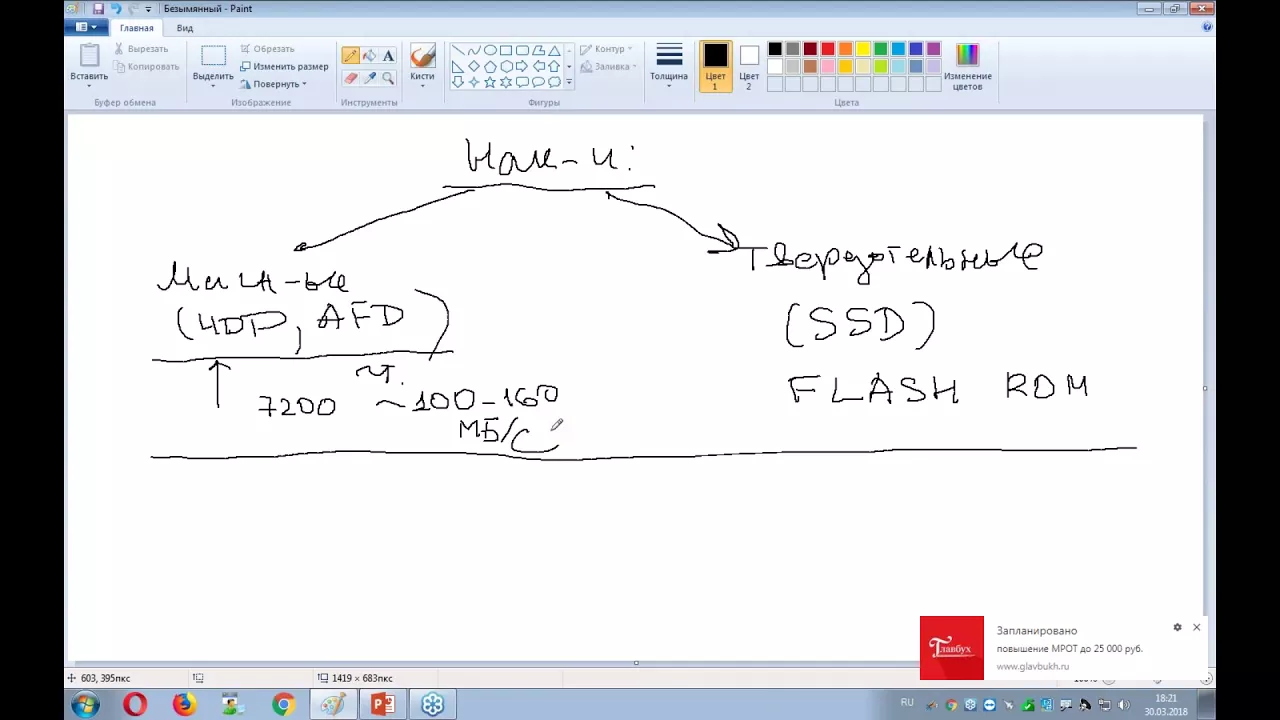 Безымянный - Paint
Главная Вид
Вставить
Вырезать
Копировать
Буфер обмена
Выделить
Обрезать
Изменить размер
Повернуть
Изображение
Инструменты
Кисти
Контур
Заливка
Фигуры
Толщина
Цвет 1
Цвет 2
Цвета
Изменение цветов
Нак-и:
Твердотельные
(SSD)
FLASH ROM
7200 ~100-160
МБ/С
Запланировано
повышение МРОТ до 25 000 руб.
www.glavbukh.ru
Главбух
603, 395пкс
1419 × 683пкс
RU
18:21
30.03.2018